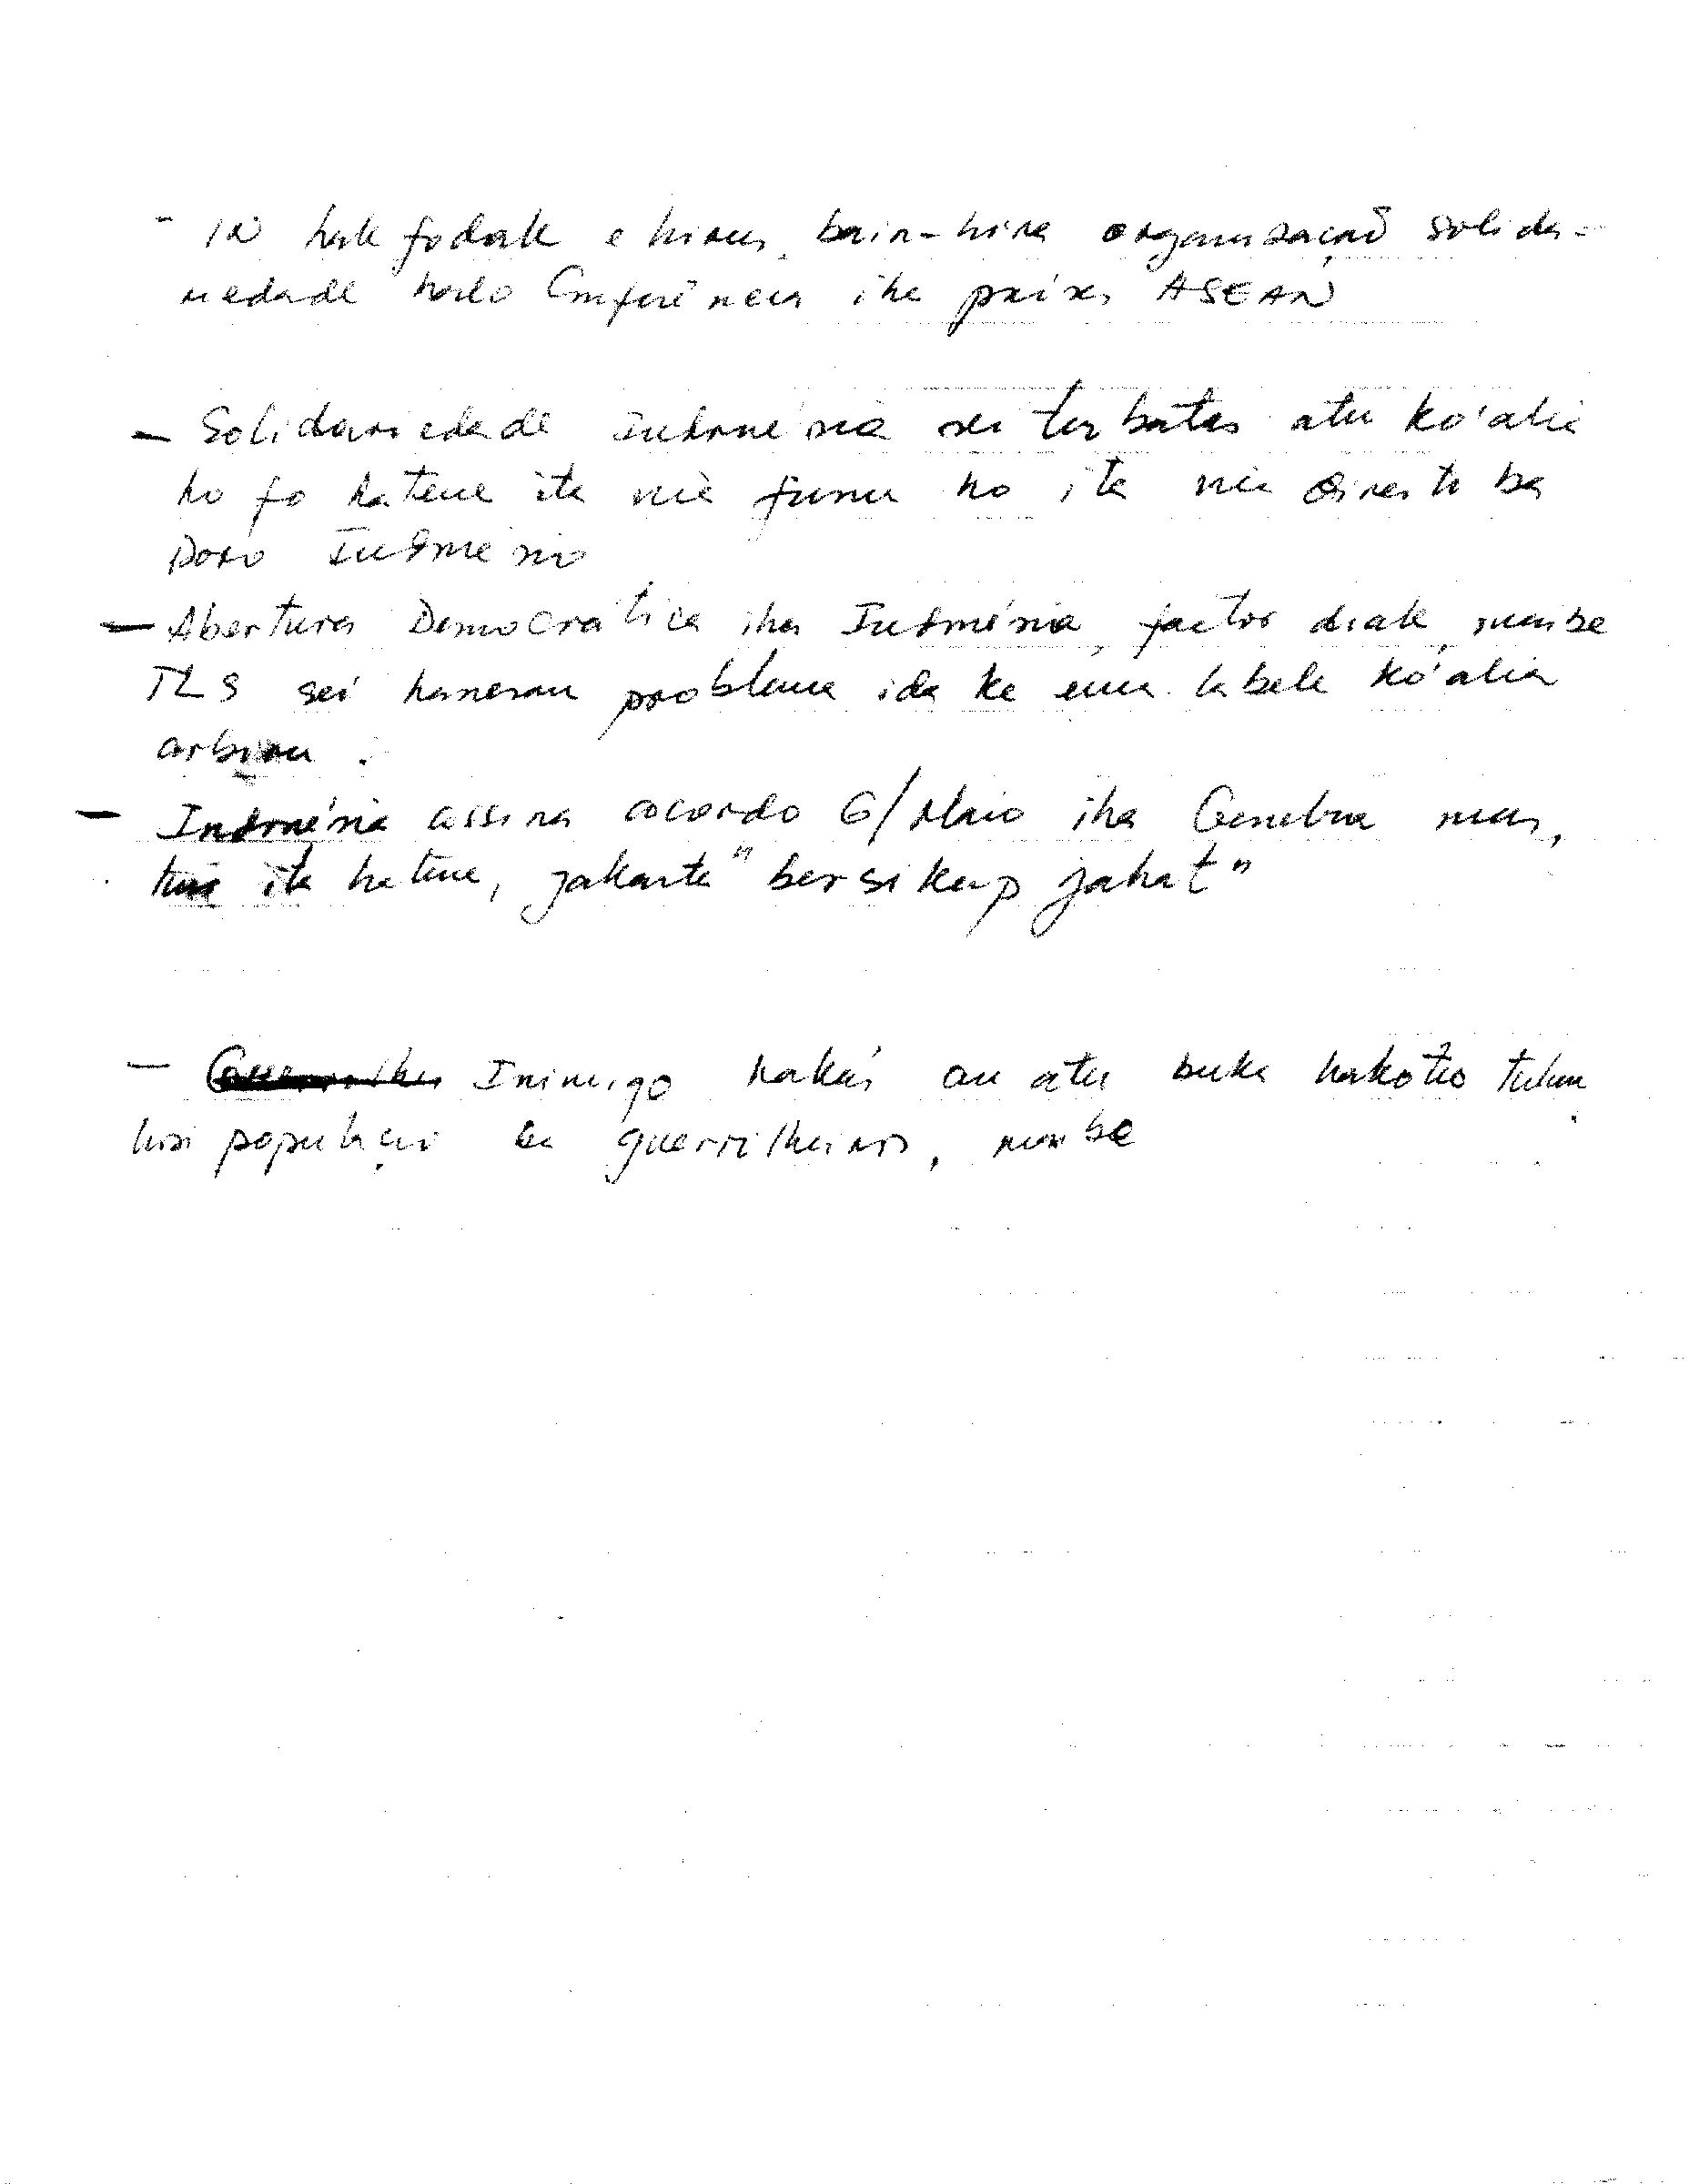 - IN hakfodak e hirus, bain-hira organização solida-
riedade halo Conferência iha país ASEAN
- Solidariedade Indonésia sei terbatas atu ko'alia
ho fo hatene ita niè funu ho ita niè direito ba
povo Indonésio
- Abertura Democrática iha Indonésia, factor diak, maibe
TLS sei hanesan problema ida ke ema labele ko'alia
arbiru.
- Indonésia assina acordo 6/Maio iha Genebra mas,
ita hatene, Jakarta "bersikap jahat"
- Inimigo hakás an atu buka hakotio tulun
husi população ba guerrilheiros, maibe